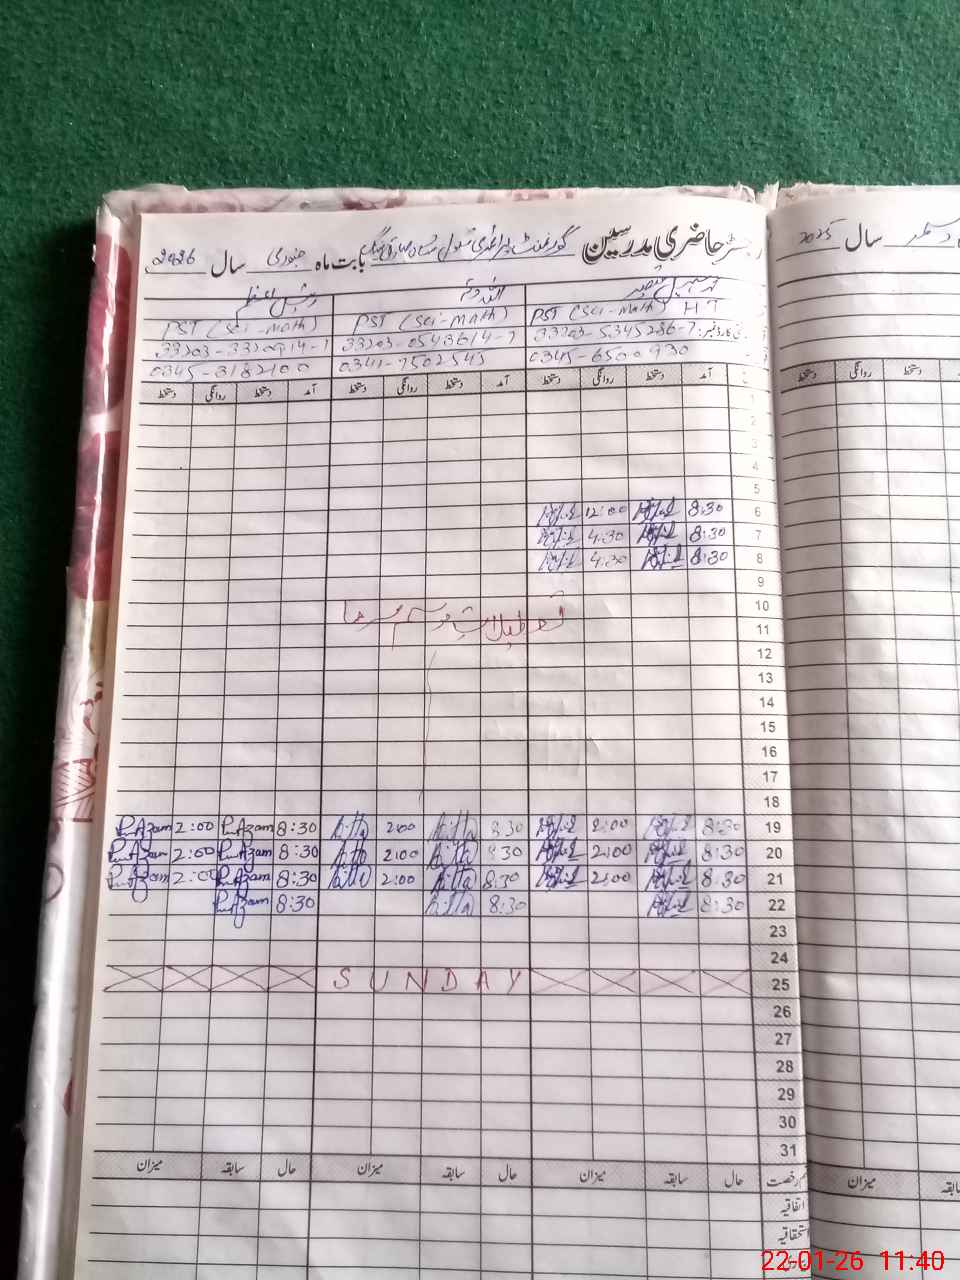 رجسٹر حاضری مدرسین گورنمنٹ پرائمری سکول بابت ماہ جنوری سال 2026
سال 2025
اللہ دتہ
PST (Sci-Math) PST (Sci-Math) PST (Sci-Math) HT
33203-0543614-7 33203-5345286-7
0345-3182100 0341-7502545 0345-6500930
آمد دستخط روانگی دستخط آمد دستخط روانگی دستخط آمد دستخط روانگی دستخط
دستخط روانگی دستخط
1
2
3
4
5
6 8:30 12:00
7 8:30 4:30
8 8:30 4:30
9
10
تعطیلات موسم سرما
11
12
13
14
15
16
17
18
19 8:30 2:00 8:30 2:00 8:30 R.Azam 2:00 R.Azam
20 8:30 2:00 8:30 2:00 8:30 R.Azam 2:00 R.Azam
21 8:30 2:00 8:30 2:00 8:30 R.Azam 2:00 R.Azam
22 8:30 8:30 8:30 R.Azam
23
24
25 SUNDAY
26
27
28
29
30
31
رخصت حال سابقہ میزان حال سابقہ میزان حال سابقہ میزان
میزان
اتفاقیہ
استحقاقیہ
22-01-26 11:40